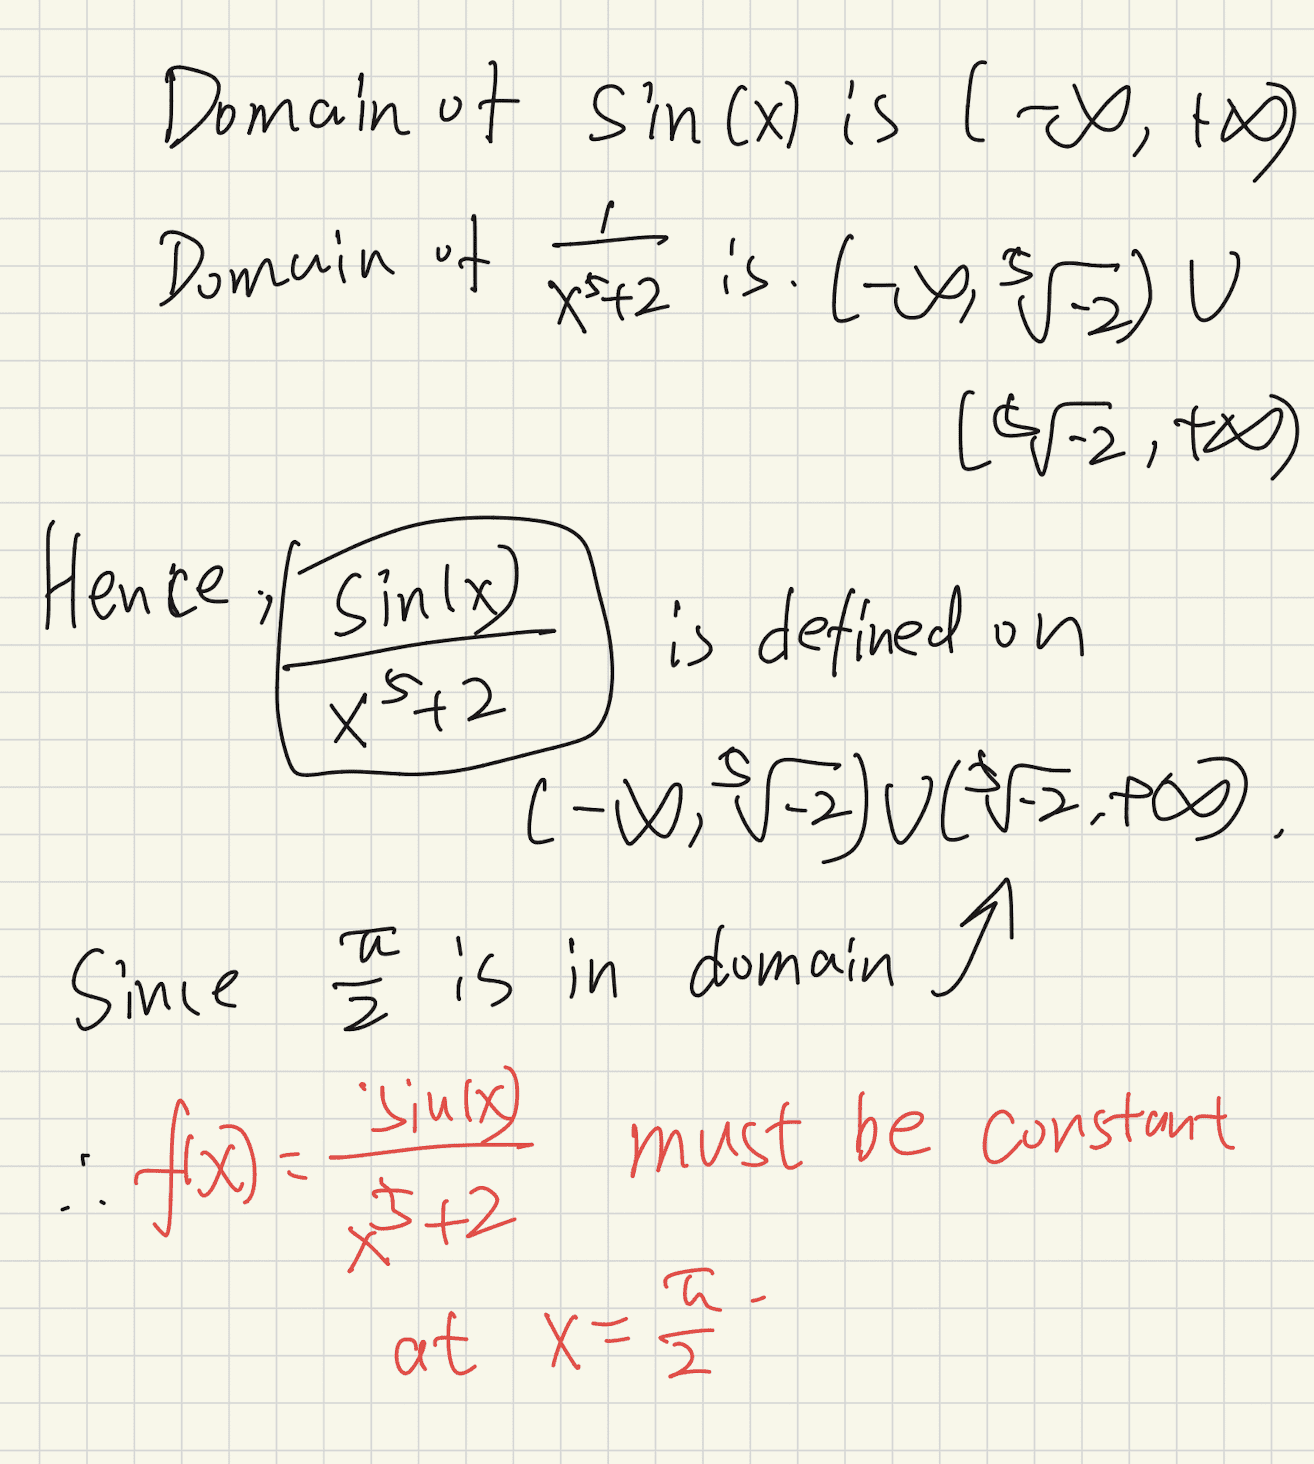 Domain of sin(x) is (-∞, +∞)
Domain of 1/(x⁵+2) is. (-∞, ⁵√-2) ∪
(⁵√-2, +∞)
Hence, sin(x)/(x⁵+2) is defined on
(-∞, ⁵√-2) ∪ (⁵√-2, +∞).
Since π/2 is in domain
∴ f(x) = sin(x)/(x⁵+2) must be constant
at x = π/2